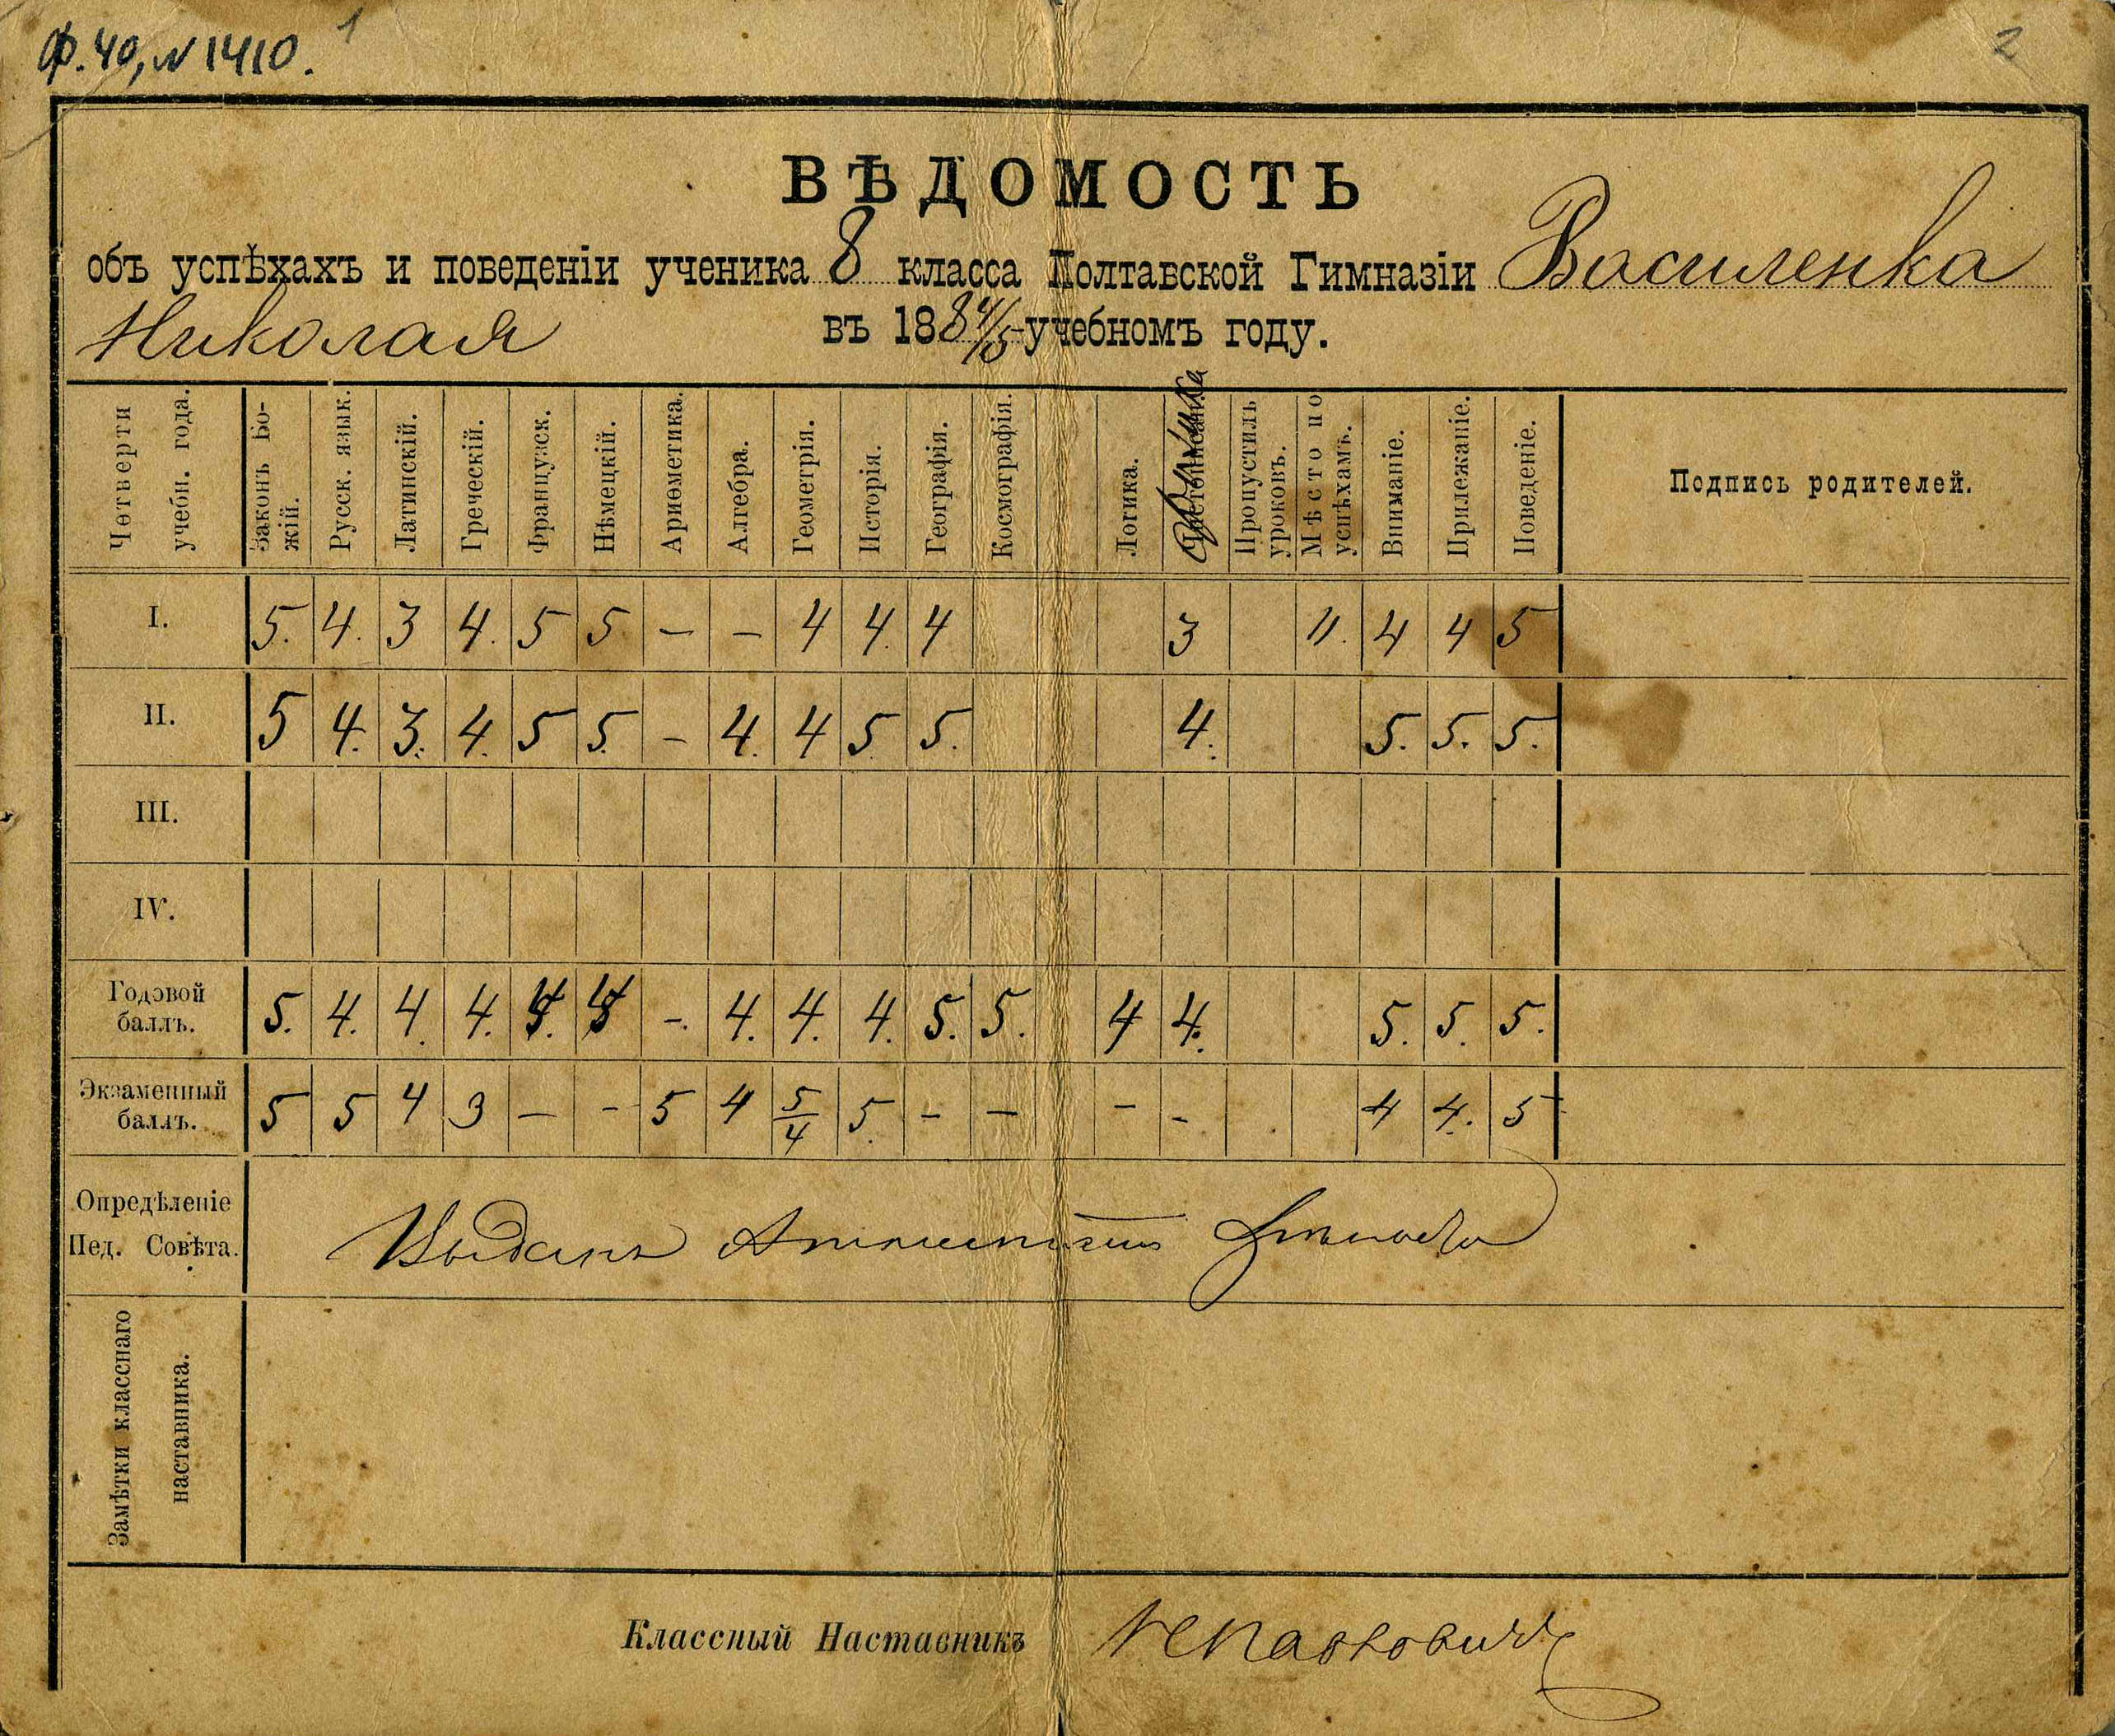 Ф. 40, № 1410. 1
2
ВѢДОМОСТЬ
объ успѣхахъ и поведеніи ученика 8 класса Полтавской Гимназіи Василенка
Николая въ 1884/5 учебномъ году.
Четверти учебн. года. Законъ Божій. Русск. язык. Латинскій. Греческій. Французск. Нѣмецкій. Ариѳметика. Алгебра. Геометрія. Исторія. Географія. Космографія. Логика. Физика Пропустилъ уроковъ. Мѣсто по успѣхамъ. Вниманіе. Прилежаніе. Поведеніе. Подпись родителей.
I. 5. 4. 3 4. 5 5 — — 4 4. 4 3 11. 4 4 5
II. 5 4. 3. 4. 5 5. — 4. 4 5 5. 4. 5. 5. 5.
III.
IV.
Годовой баллъ. 5. 4. 4. 4. 4. 4 -. 4. 4. 4. 5. 5. 4 4. 5. 5. 5.
Экзаменный баллъ. 5 5 4 3 — - 5 4 5/4 5. - — - - 4 4. 5
Опредѣленіе
Пед. Совѣта. Выданъ Аттестатъ
Замѣтки класснаго
наставника.
Классный Наставникъ